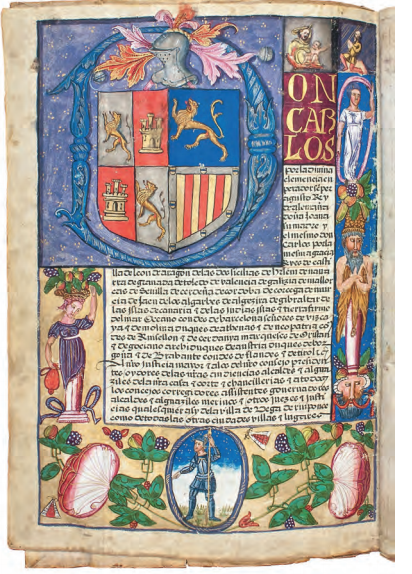 D
ON
CAR
LOS
por la diuina
clemencia en
perador sẽper
augusto Rey
de alemania
doña Joana
su madre y
el mesmo don
Carlos por la
mesma gracia
Reyes de casti
lla de leon de aragon de las dos sicilias de hrlem de naua
rra de granada de toledo de valencia de galizia de mallor
cas de Seuilla de cerdeña de cordoua de corcega de mur
cia de Jaen de los algarbes de algezira de gibraltar de
las yslas de canaria e de las indias yslas e tierra firme
del mar Oceano condes de barcelona señores de vizca
ya e de molina duques de athenas e de neopatria cõ
des de Ruisellon e de cerdanya marqueses de oristan
e de gociano archiduques de austria duques de borgo
goña e de brabante condes de flandes e de tirol etc
Al nro justicia mayor e a los del nro consejo presiden
tes y oydores de las nras audiencias alcaldes e algua
ziles de la nra casa e corte e chancillerias e a todos
los concejos corregidores assistentes gouernadores
alcaldes e alguaziles merinos e otros juezes e justi
cias qualesquier asy de la villa de
como de todas las otras ciudades villas e lugares